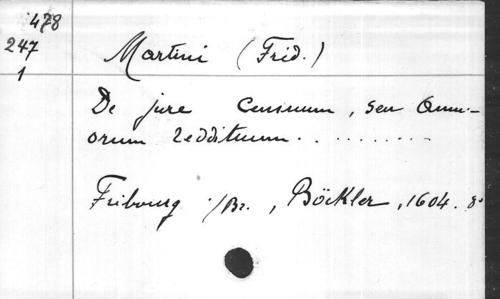 478
247
1
Martini (Frid.)
De jure Censuum, seu Annu-
orum reddituum . . . . . . . . . .
Fribourg i/Br., Böckler, 1604. 8°